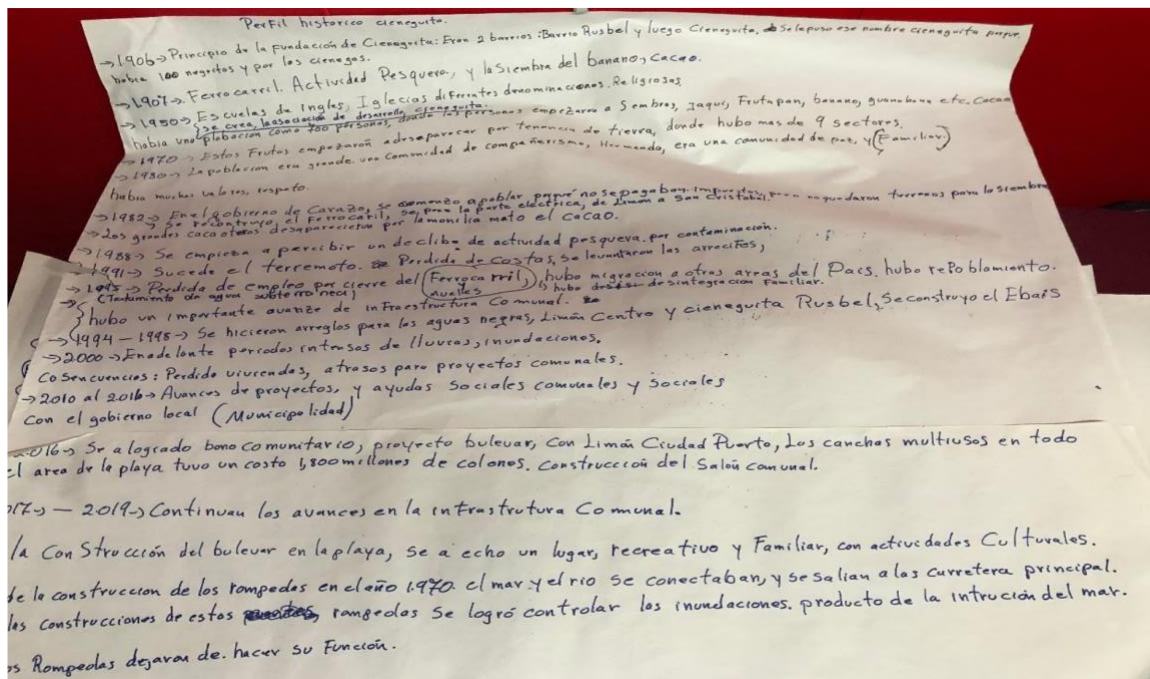 Perfil historico cieneguita.
→1906→Principio de la fundación de Cieneguita: Eran 2 barrios: Barrio Rusbel y luego Cieneguita, Se le puso ese nombre cieneguita porque
habia 100 negritos y por las cienegas.
→1907→ Ferrocarril. Actividad Pesquera, y la Siembra del banano, cacao.
→1950→ Escuelas de Ingles, Iglecias diferentes denominaciones. Religiosas
se crea, la asociación de desarrollo, cieneguita.
habia una poblacion como 400 personas, donde las personas empezaron a Sembrar, Frutapan, banano, guanabana etc. Cacao
→1970→ Estas Frutas empezaron a desaparecer por tenencia de tierra, donde hubo mas de 9 sectores.
→1980→ La poblacion era grande. una Comunidad de compañerismo, Hermandad, era una comunidad de paz, y (Familiar)
habia muchos valores, respeto.
→1982→ En el gobierno de Carazo, se comenzo a poblar porque no se pagaban impuestos, pero no quedaron terrenos para la Siembra
→ Se recontruyo, el Ferrocaril, Se puso la parte electrica, de Limon a San Cristobal.
→Los grandes cacaoteros desaparecieron por la monilia mato el cacao.
→1988→ Se empieza a percibir un declibe de actividad pesquera, por contaminación.
→1991→ Sucede el terremoto. Perdida de Costas, Se levantaron los arrecifes,
→1995→ Perdida de empleo por cierre del Ferrocarril, hubo migracion a otras areas del Pais. hubo repoblamiento.
muelles hubo desintegracion Familiar.
hubo un importante avance de infraestructura Comunal.
→1994 – 1998→ Se hicieron arreglos para las aguas negras, Limón Centro y cieneguita Rusbel, Se construyo el Ebais
→2000→ En adelante periodos intensos de lluvias, inundaciones.
Cosencuencias: Perdida viviendas, atrasos para proyectos comunales.
→2010 al 2016→ Avances de proyectos, y ayudas Sociales comunales y Sociales
con el gobierno local (Municipalidad)
2016→ Se a logrado bono comunitario, proyecto bulevar, con Limón Ciudad Puerto, Las canchas multiusos en todo
el area de la playa tuvo un costo 1,800 millones de colones. Construcción del Salón comunal.
017→ – 2019→ Continuan los avances en la infrastrutura Comunal.
la ConStrucción del bulevar en la playa, se a echo un lugar, recreativo y Familiar, con actividades Culturales.
de la construccion de los rompeolas en el año 1.970. el mar y el rio Se conectaban, y se salian a las carretera principal.
las construcciones de estos rompeolas Se logró controlar las inundaciones. producto de la intrución del mar.
os Rompeolas dejaron de hacer Su Función.